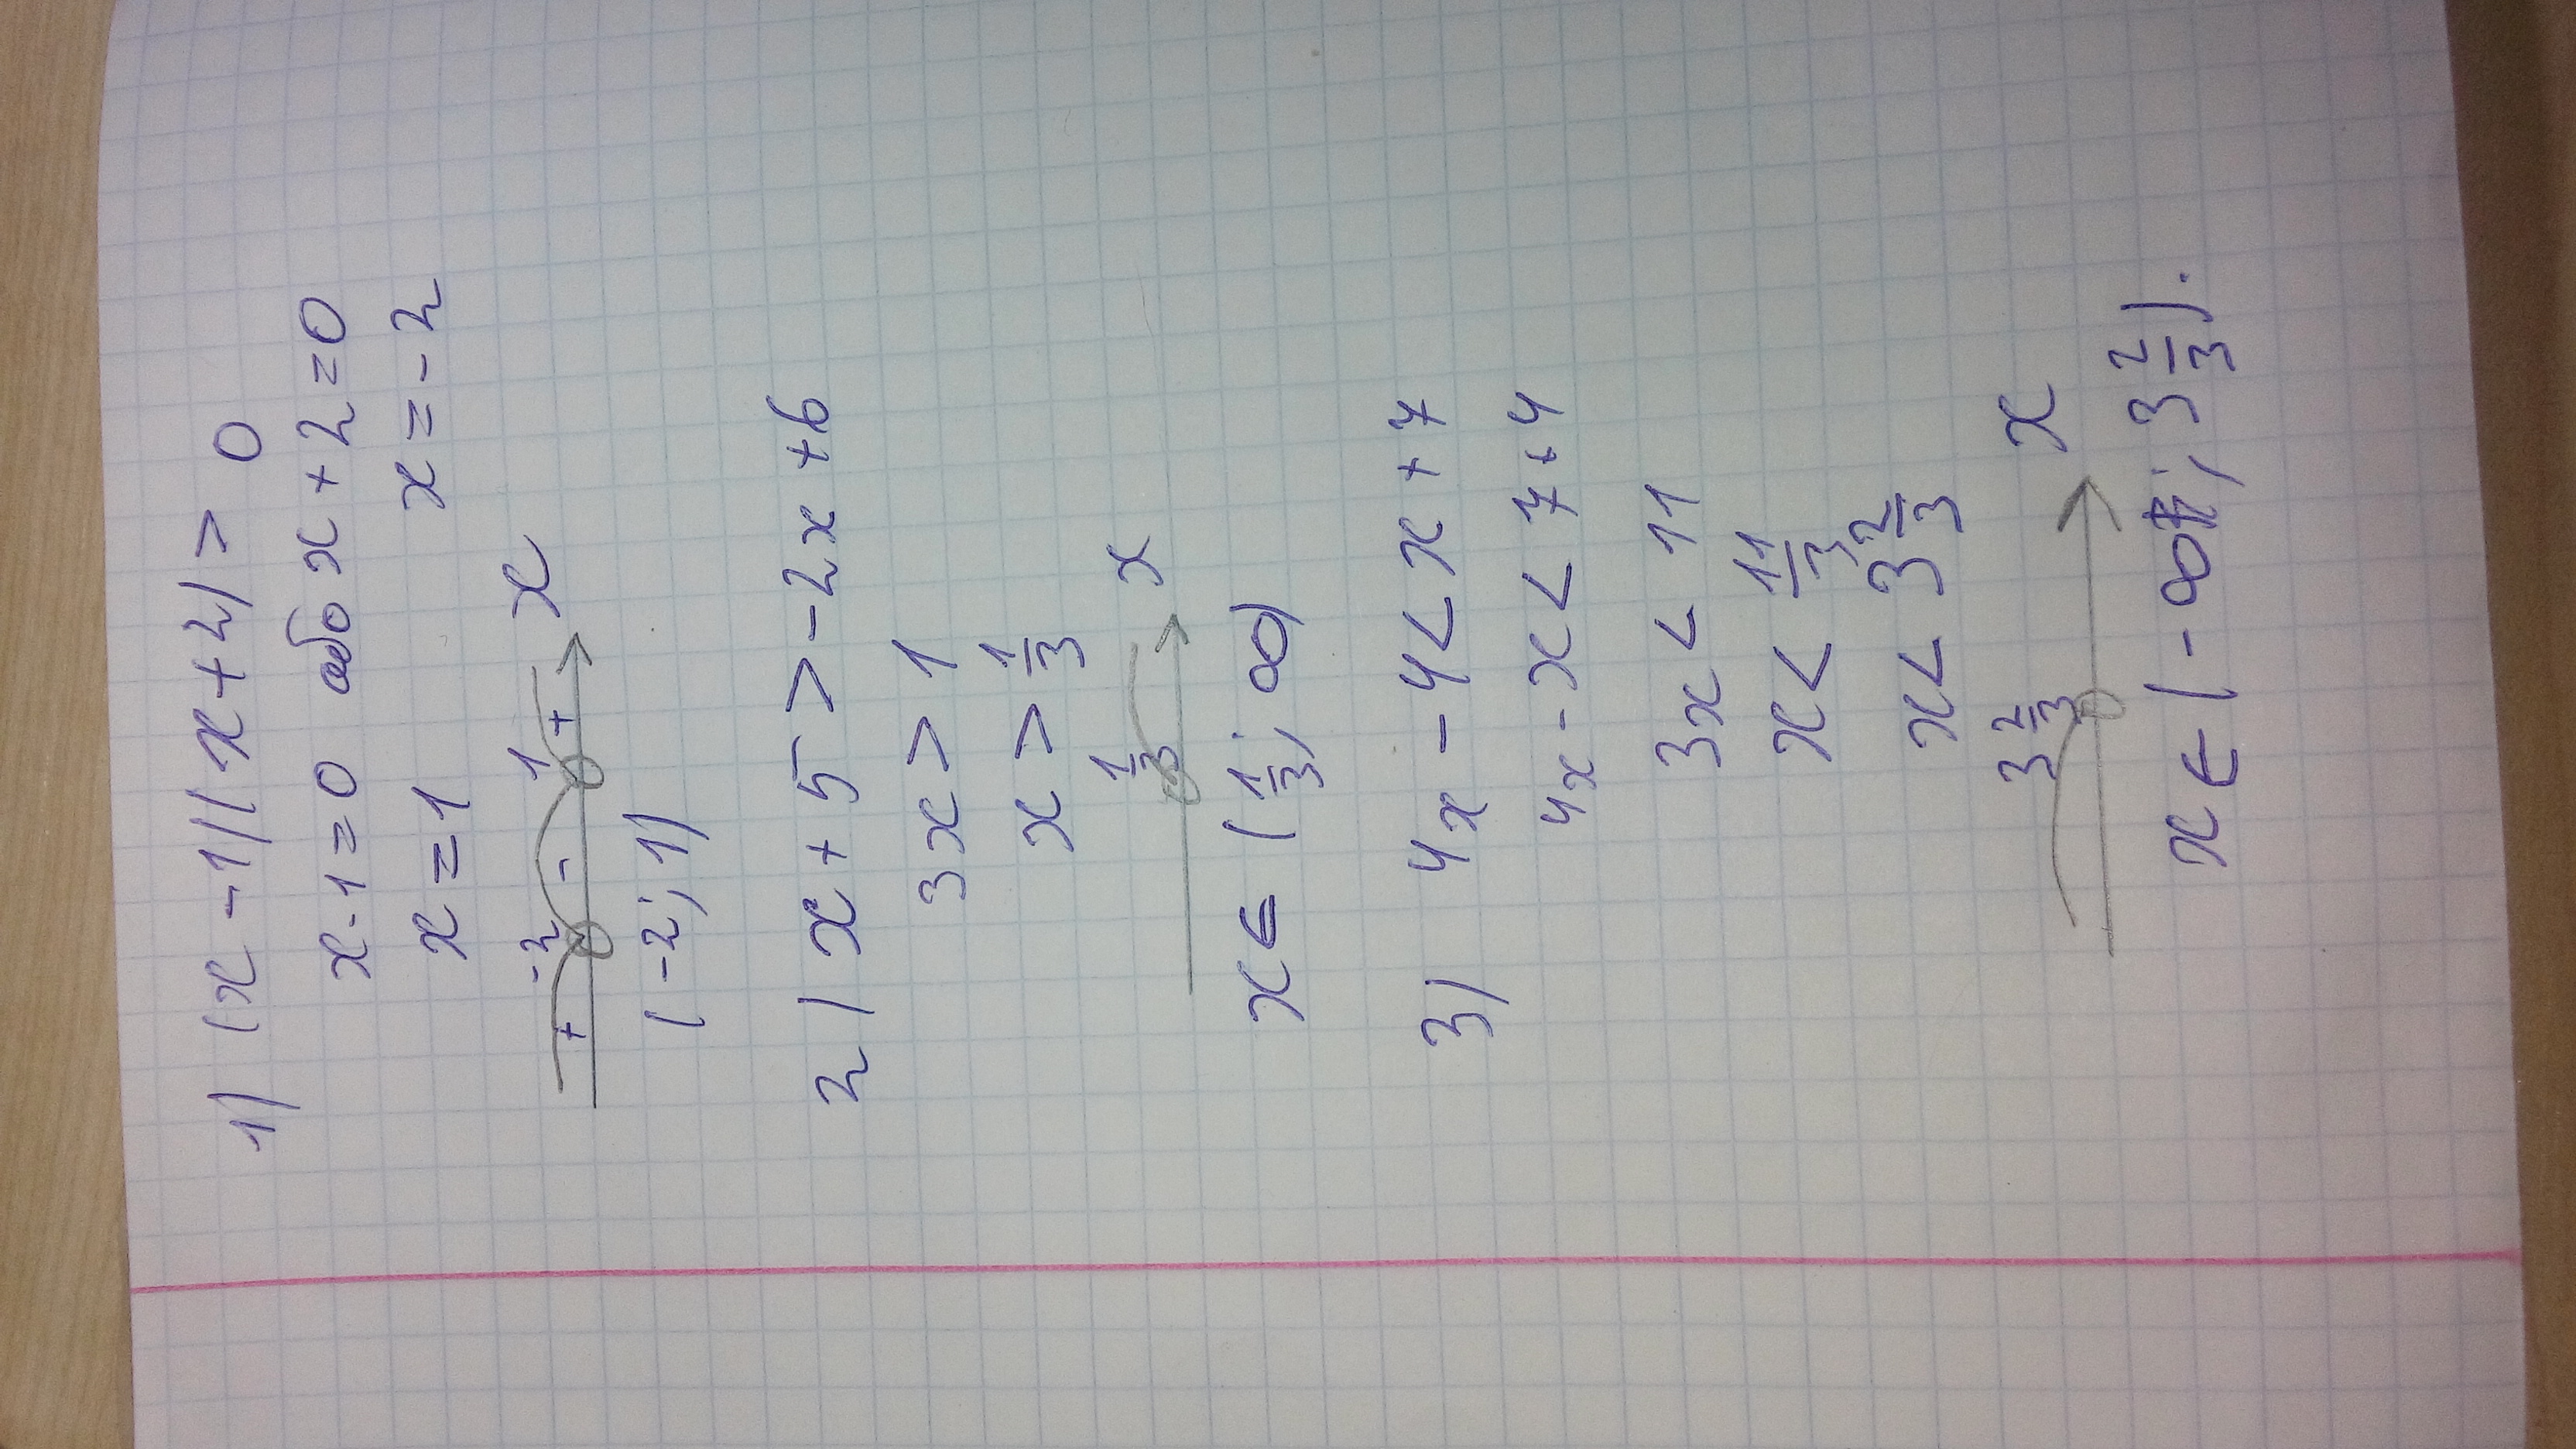 1) (x - 1)(x + 2) > 0
x - 1 = 0 або x + 2 = 0
x = 1 x = -2
-2 1
+ - + x
(-2; 1)
2) x + 5 > -2x + 6
3x > 1
x > 1/3
1/3 x
x ∈ (1/3; ∞)
3) 4x - 4 < x + 7
4x - x < 7 + 4
3x < 11
x < 11/3
x < 3 2/3
3 2/3 x
x ∈ (-∞; 3 2/3).